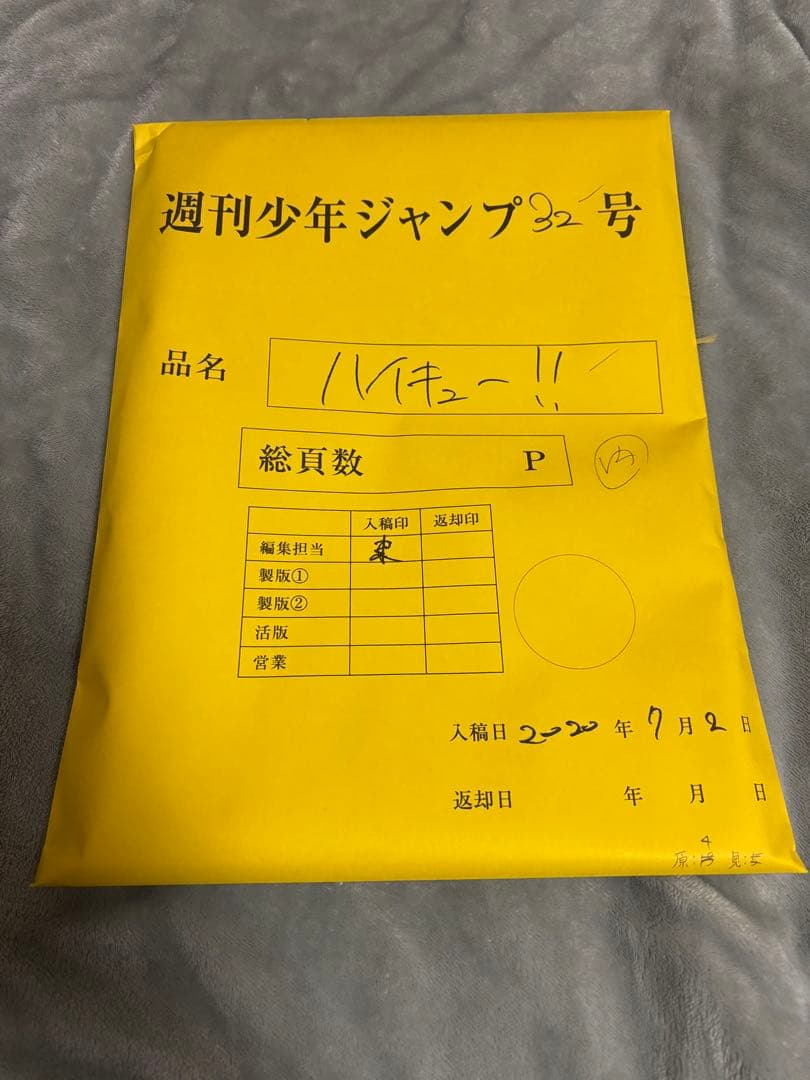 週刊少年ジャンプ32号
品名 ハイキュー!!
総頁数 P
入稿印 返却印
編集担当 東
製版①
製版②
活版
営業
入稿日 2020年7月2日
返却日 年 月 日
4